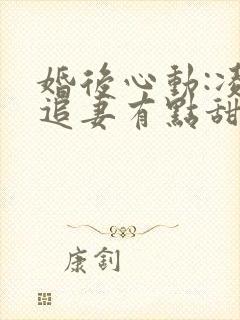 婚後心動:
追妻有點甜
康釗